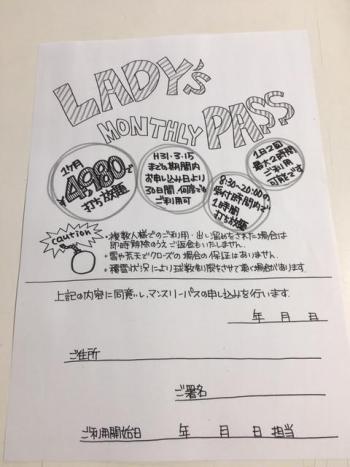 LADY's
MONTHLY PASS
1ヶ月
¥4980で
打ち放題
H31.3.15
までの期間内
お申し込み日より
30日間、何度でも
ご利用可
8:30~20:00の
受付時間内で
1時間
打ち放題
1日2回
最大2時間
ご利用
可能です
caution
・複数人様でのご利用・出し溜めをされた場合は
即時解除のうえご返金もいたしません。
・雪や荒天でクローズの場合の保証はありません。
・積雪状況により球数制限をさせて頂く場合があります
上記の内容に同意し、マンスリーパスの申し込みを行います.
年 月 日
ご住所
ご署名
ご利用開始日 年 月 日 担当